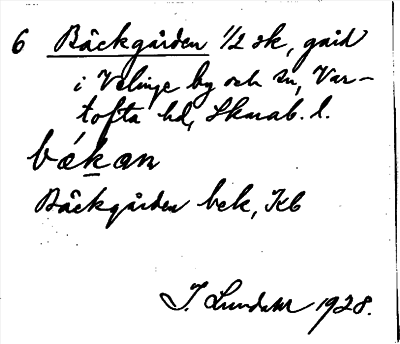 6 Bäckgården 1/2 sk, gård
i Valinge by och sn, Var-
tofta hd, Skarab. l.
bákan
Bäckgården bek, Kb
J. Lundahl 1928.